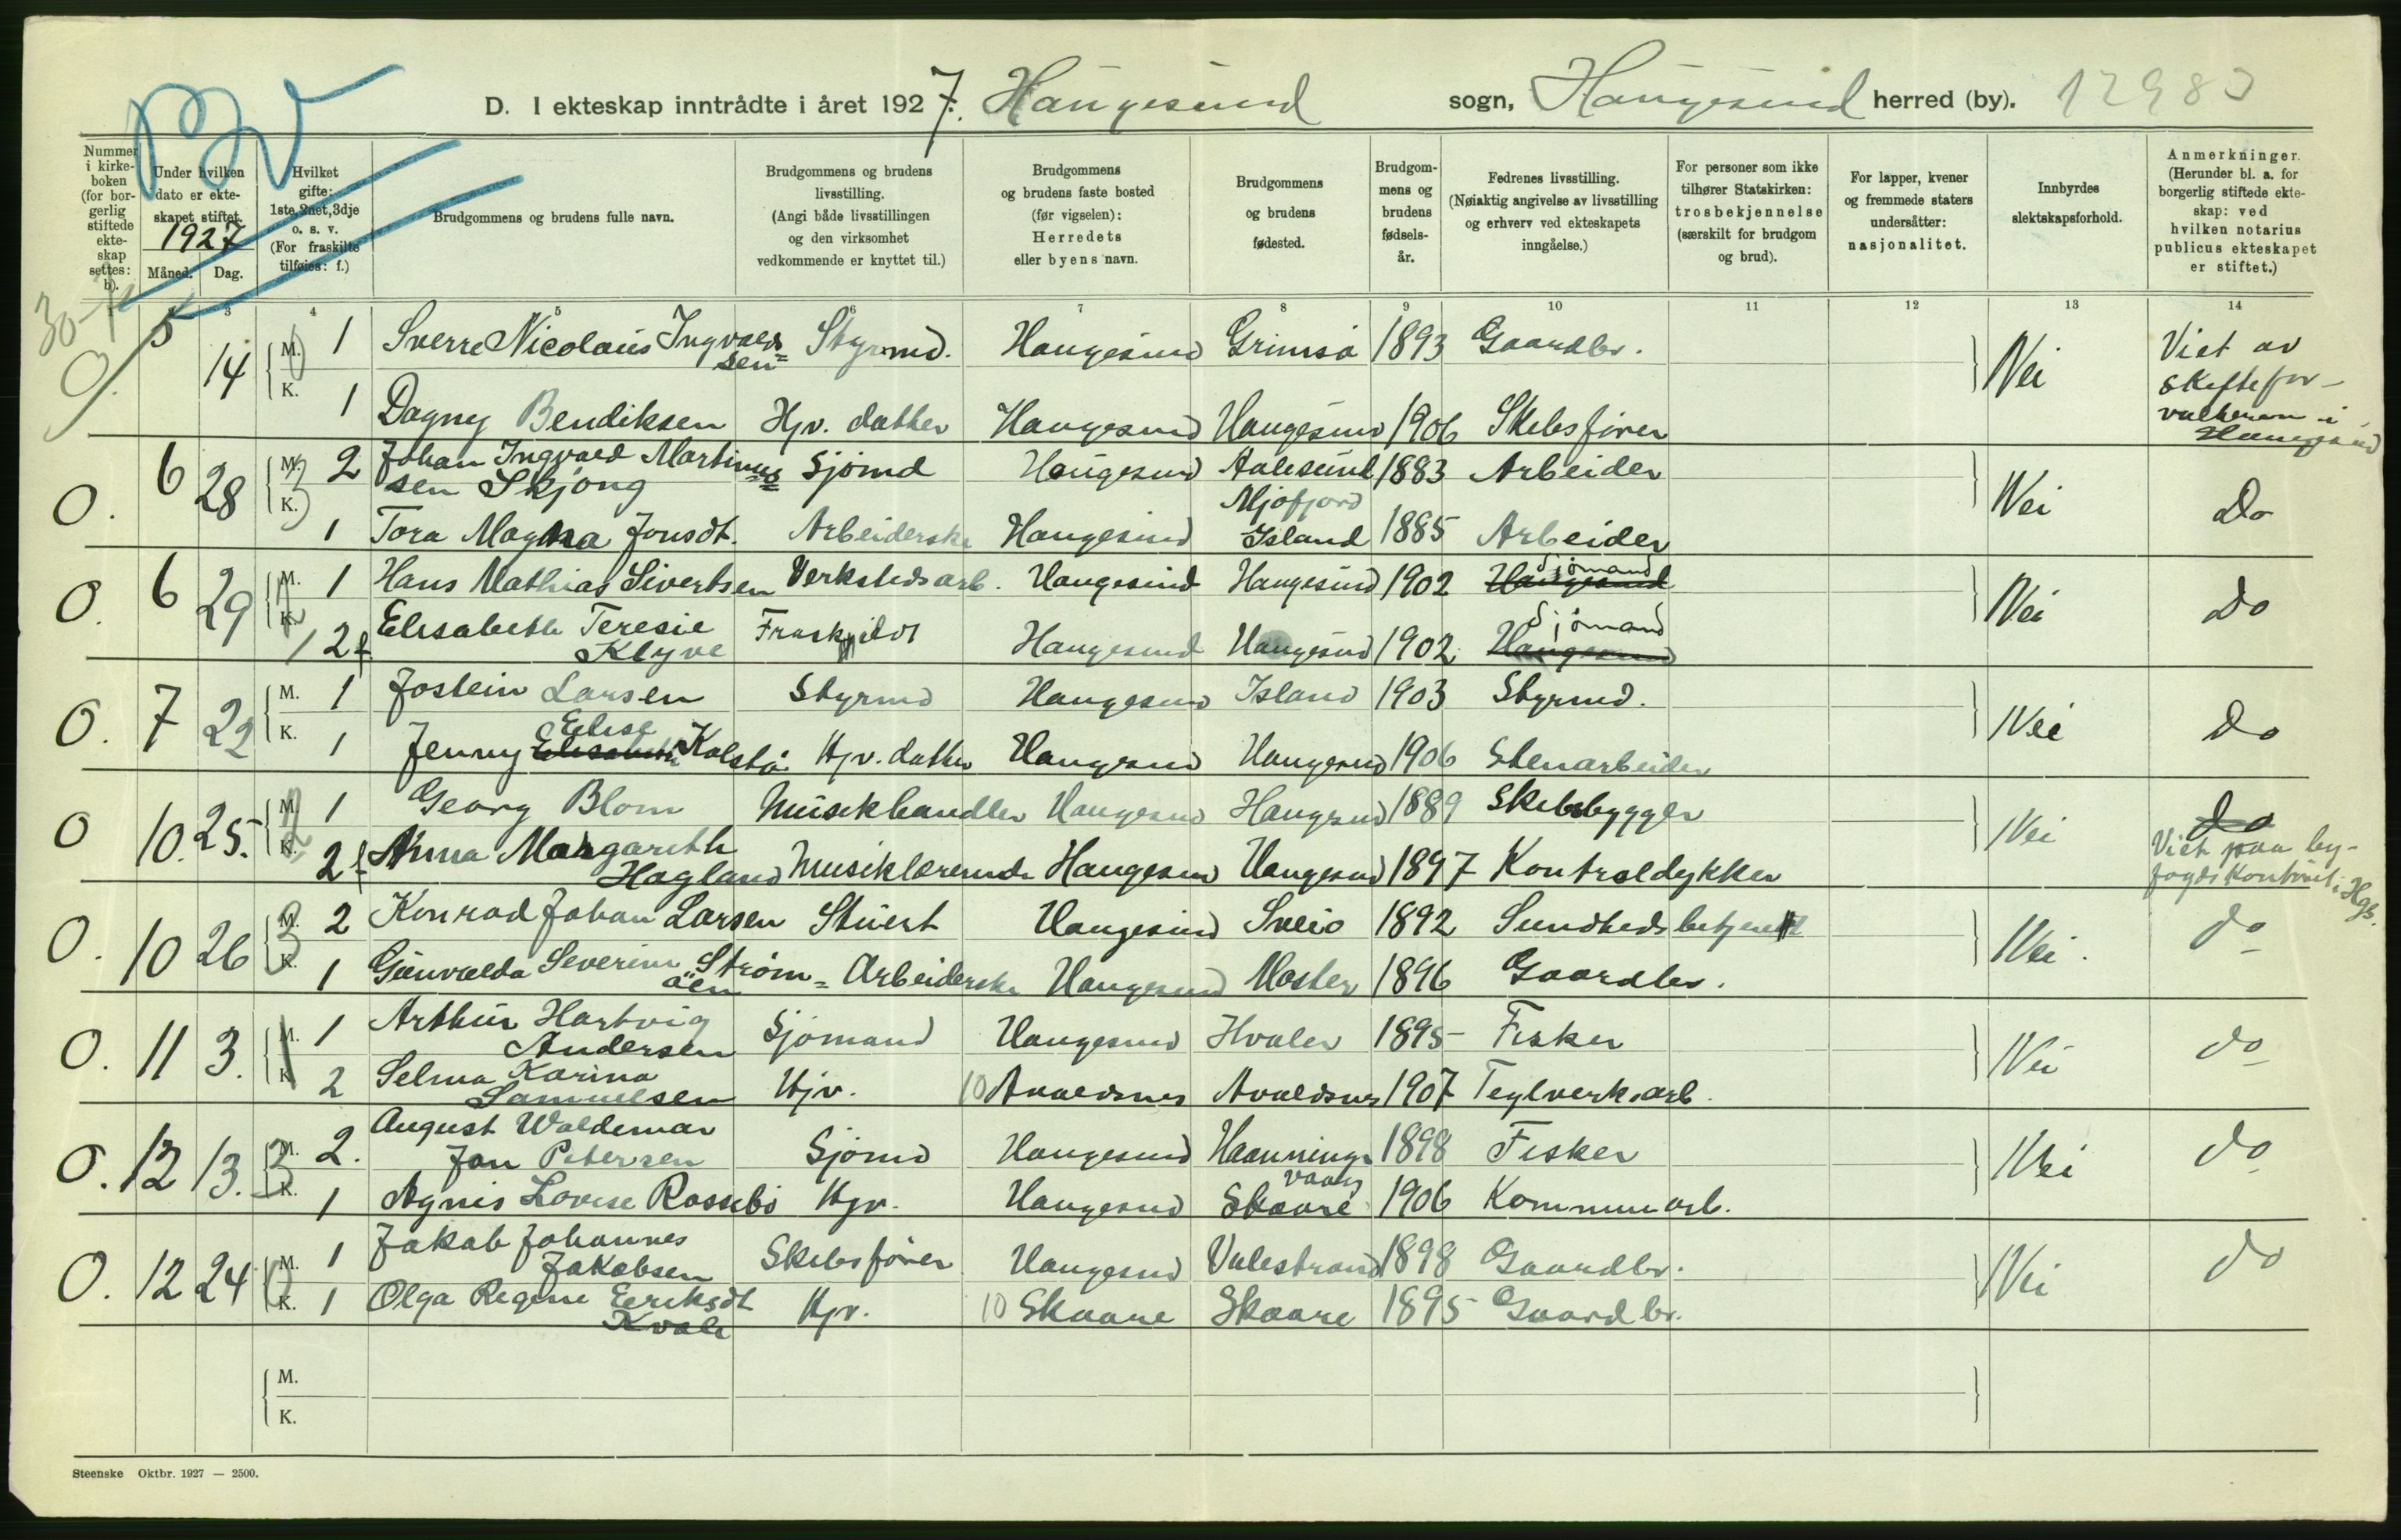 BV
D. I ekteskap inntrådte i året 1927. Haugesund sogn, Haugesund herred (by). 12983
Nummer i kirkeboken (for borgerlig stiftede ekteskap settes: b).
Under hvilken dato er ekteskapet stiftet.
1927
Måned. Dag.
Hvilket gifte: 1ste, 2net, 3dje o. s. v. (For fraskilte tilføies: f.)
Brudgommens og brudens fulle navn.
Brudgommens og brudens livsstilling. (Angi både livsstillingen og den virksomhet vedkommende er knyttet til.)
Brudgommens og brudens faste bosted (før vigselen): Herredets eller byens navn.
Brudgommens og brudens fødested.
Brudgommens og brudens fødselsår.
Fedrenes livsstilling. (Nøiaktig angivelse av livsstilling og erhverv ved ekteskapets inngåelse.)
For personer som ikke tilhører Statskirken: trosbekjennelse (særskilt for brudgom og brud).
For lapper, kvener og fremmede staters undersåtter: nasjonalitet.
Innbyrdes slektskapsforhold.
Anmerkninger. (Herunder bl. a. for borgerlig stiftede ekteskap: ved hvilken notarius publicus ekteskapet er stiftet.)
3 4 5 6 7 8 9 10 11 12 13 14
5 14 M. 1 Sverre Nicolaus Ingvaldsen Styrmd. Haugesund Grimsø 1893 Gaardbr. Nei Viet av skiftefor-
K. 1 Dagny Bendiksen Hjv. datter Haugesund Haugesund 1906 Skibsfører valteren i Haugesund
O. 6 28 M. 2 Johan Ingvald Martinussen Skjong Sjømd Haugesund Aalesund 1883 Arbeider Nei Do
K. 1 Tora Magna Jonsdt. Arbeiderske Haugesund Mjofjord Island 1885 Arbeider
O. 6 29 M. 1 Hans Mathias Sivertsen Verkstedsarb. Haugesund Haugesund 1902 Haugesund Sjømand Nei Do
K. 2f Elisabeth Teresie Klyve Fraskildt Haugesund Haugesund 1902 Haugesund Sjømand
O. 7 22 M. 1 Jostein Larsen Styrmd Haugesund Island 1903 Styrmd. Nei Do
K. 1 Jenny Elisabeth Elise Kolstø Hjv. datter Haugesund Haugesund 1906 Stenarbeider
O 10. 25. M. 1 Georg Blom Musikhandler Haugesund Haugesund 1889 Skibsbygger Nei Do
K. 2f Anna Margareth Hagland Musiklærerinde Haugesund Haugesund 1897 Kontroldykker Viet paa byfogdkontoret i Hgs.
O. 10 26 M. 2 Konrad Johan Larsen Stuert Haugesund Sveio 1892 Sundhedsbetjent Nei. do
K. 1 Gunvalda Severine Strømøen Arbeiderske Haugesund Moster 1896 Gaardbr.
O. 11 3. M. 1 Arthur Hartvig Andersen Sjømand Haugesund Hvaler 1895 Fisker Nei do
K. 2 Selma Karina Samuelsen Hjv. 10 Avaldsnes Avaldsnes 1907 Teglverksarb.
O. 12 13. M. 2. August Waldemar Jan Petersen Sjømd Haugesund Haanningsvaag 1898 Fisker Nei do
K. 1 Agnis Lovise Rossebø Hjv. Haugesund Skaare 1906 Kommunearb.
O. 12 24 M. 1 Jakob Johannes Jakobsen Skibsfører Haugesund Valestrand 1898 Gaardbr. Nei do
K. 1 Olga Regine Eeriksdt Kvale Hjv. 10 Skaare Skaare 1895 Gaardbr.
M.
K.
Steenske Oktbr. 1927 — 2500.